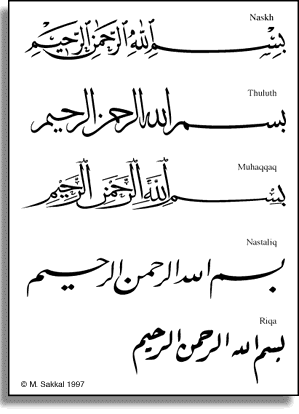 Naskh
بِسْمِ اللهِ الرَّحْمٰنِ الرَّحِيْمِ
Thuluth
بسم الله الرحمن الرحيم
Muhaqqaq
بِسْمِ اللَّهِ الرَّحْمَٰنِ الرَّحِيْمِ
Nastaliq
بسم الله الرحمن الرحيم
Riqa
بسم الله الرحمن الرحيم
© M. Sakkal 1997